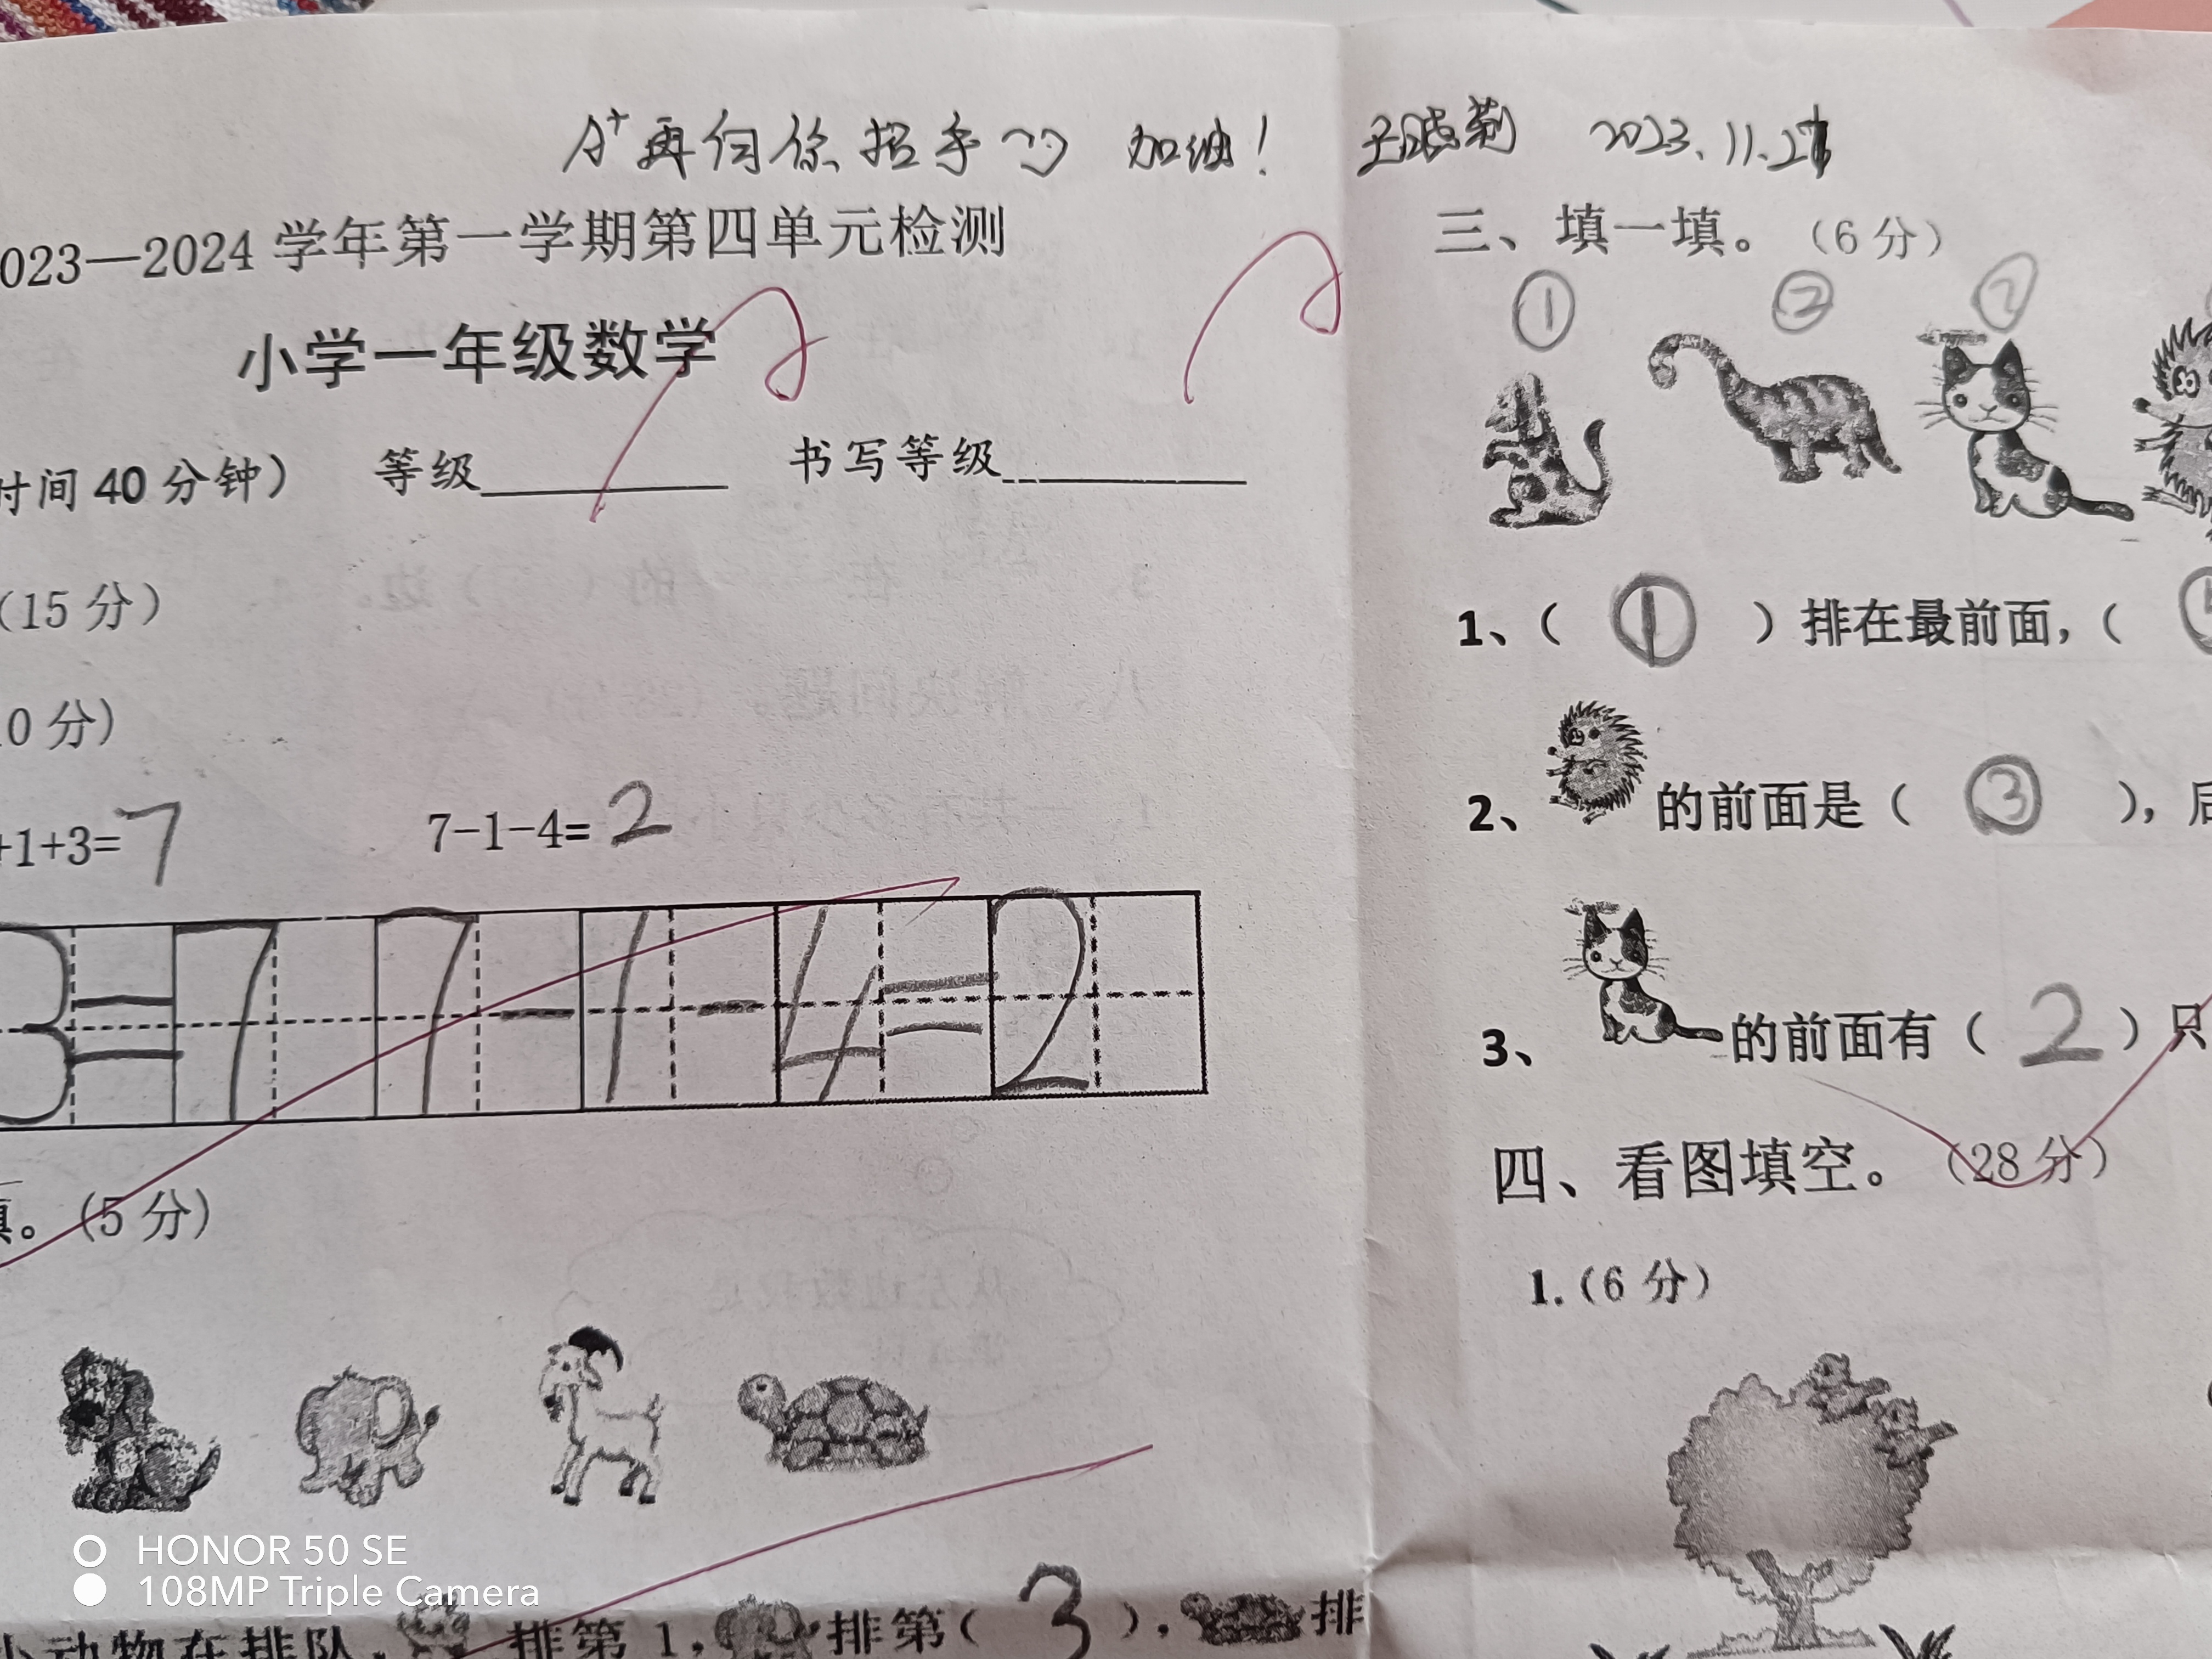 A+再向你招手 加油！ 2023.11.21
023—2024学年第一学期第四单元检测
小学一年级数学
时间40分钟） 等级 书写等级
（15分）
0分）
+1+3=7 7-1-4=2
3=7 7-1-4=2
填。（5分）
小动物在排队， 排第1， 排第（3）， 排
三、填一填。（6分）
① ② ③
1、（①）排在最前面，（
2、的前面是（③），后
3、的前面有（2）只
四、看图填空。（28分）
1.（6分）
HONOR 50 SE
108MP Triple Camera